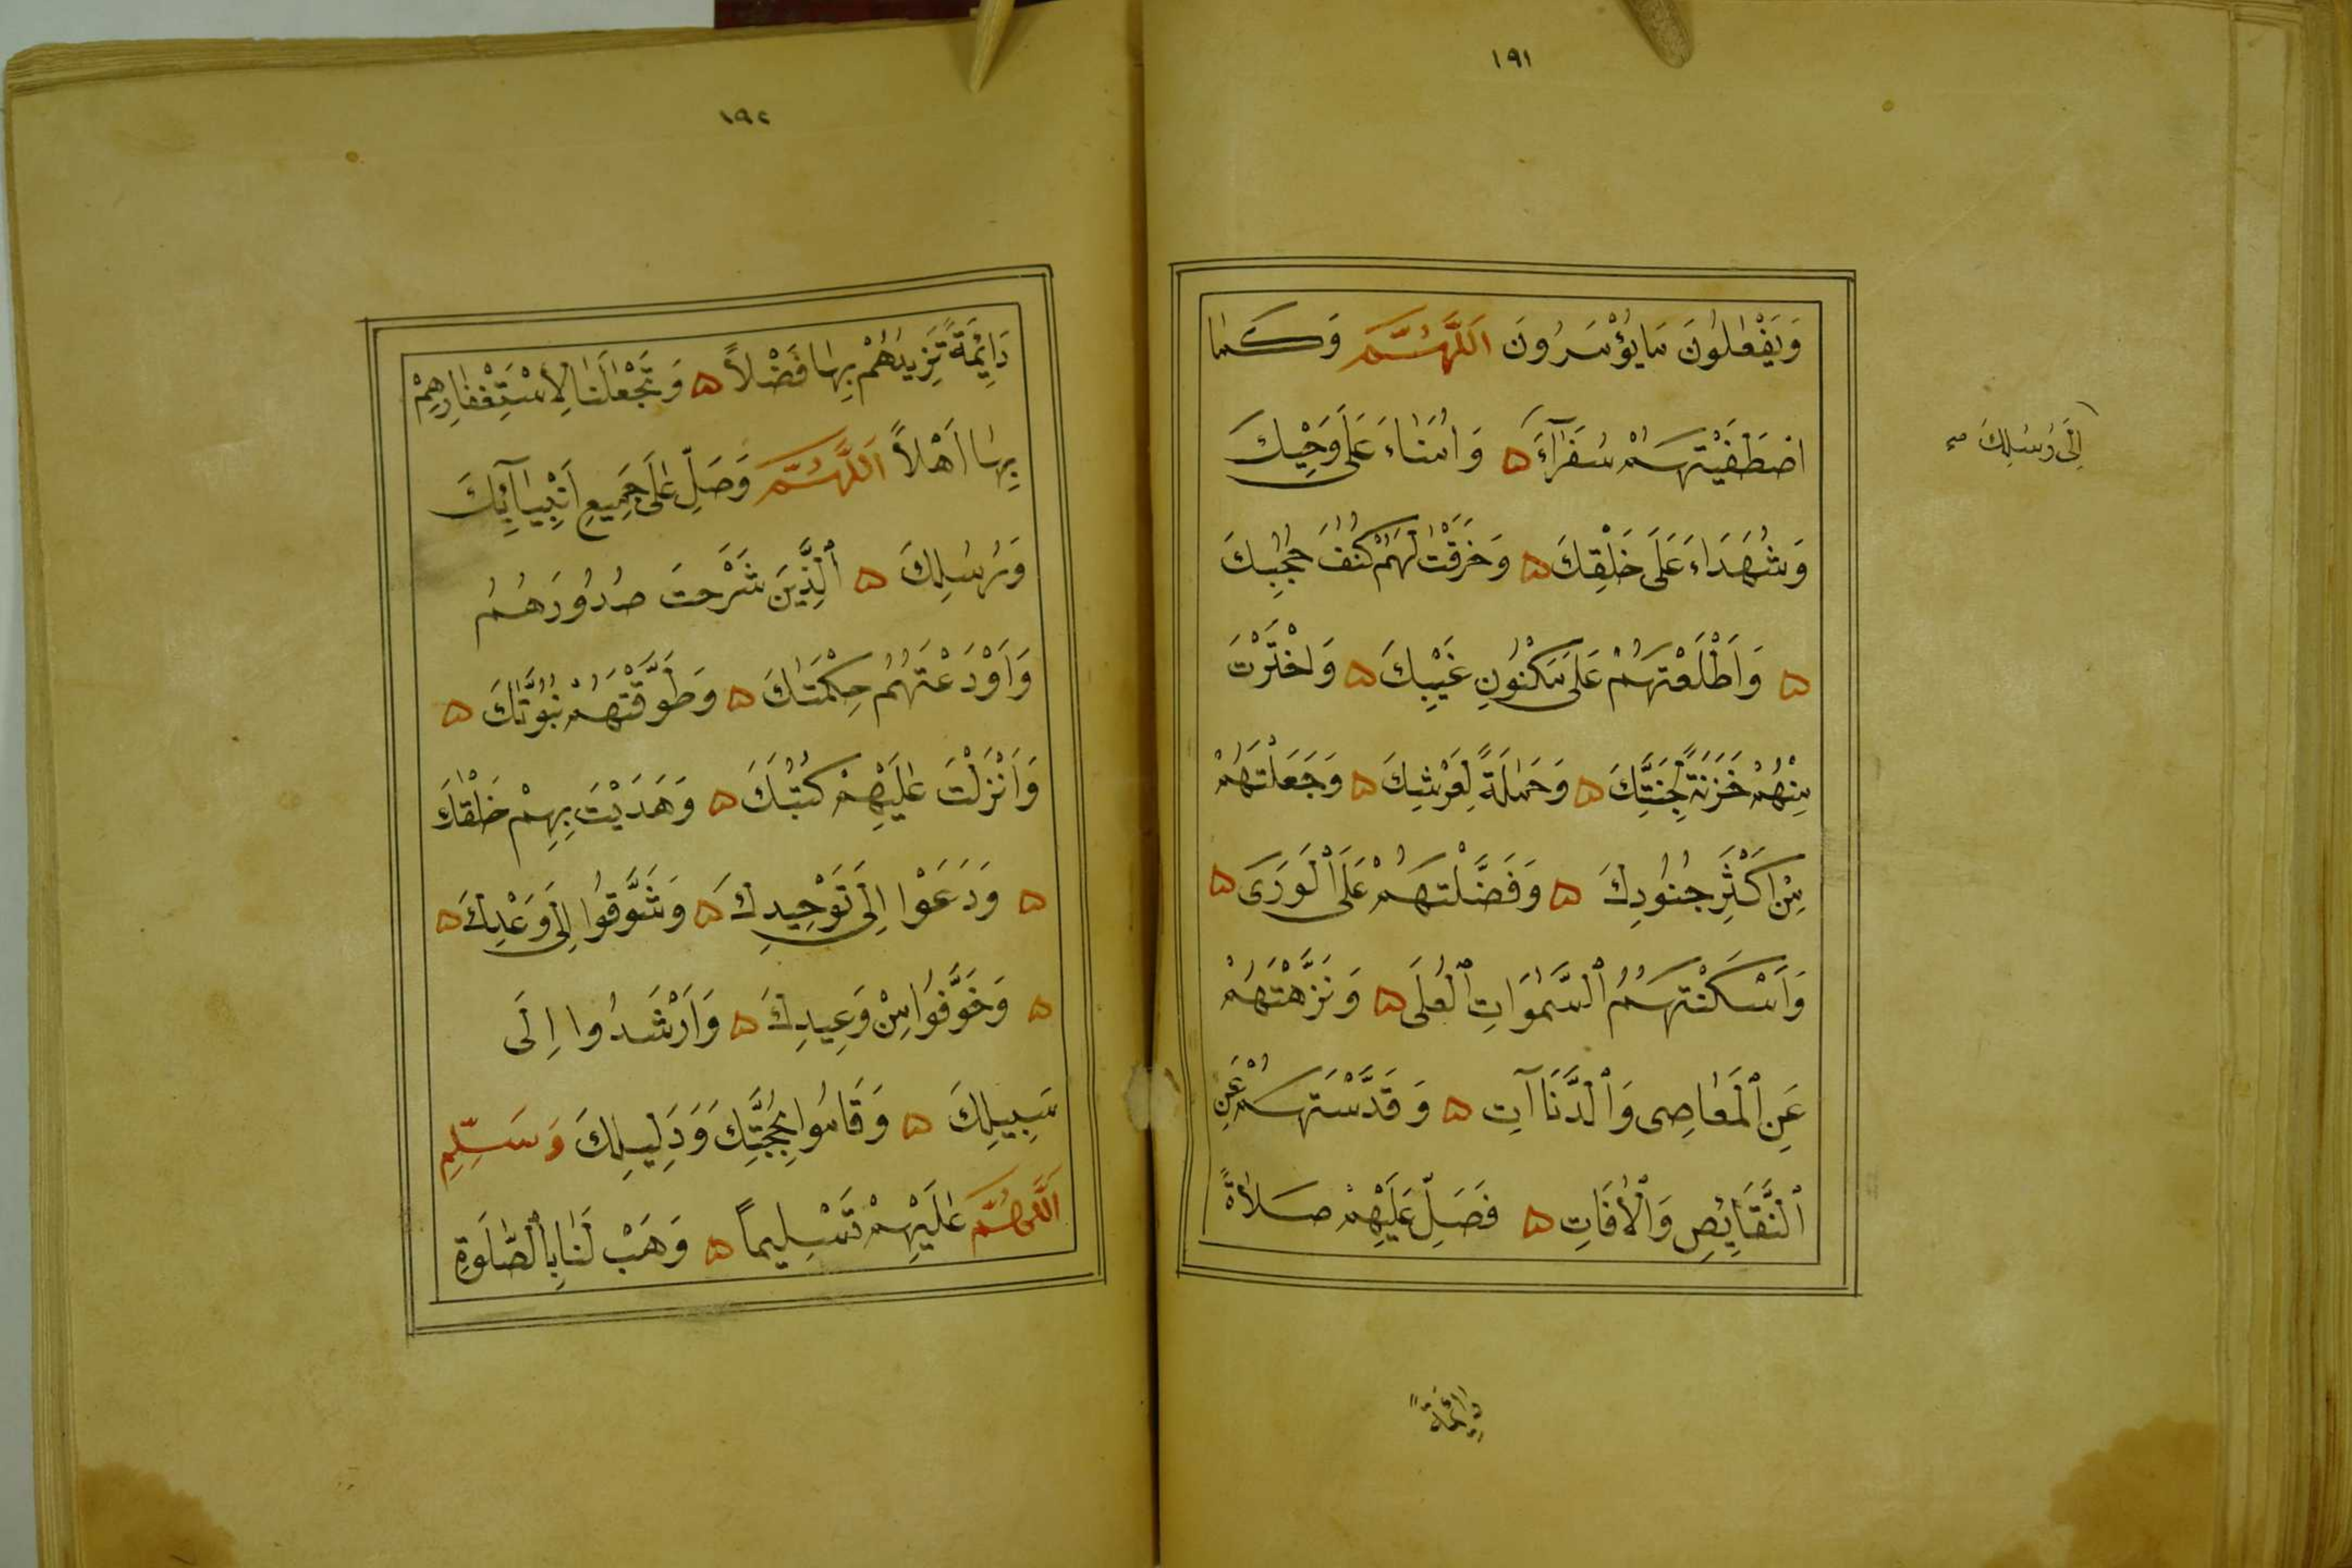 ١٩١
وَيَفْعَلُونَ مَا يُؤْمَرُونَ اَللَّهُمَّ وَكَمَا
اصْطَفَيْتَهُمْ سُفَرَآءَ ۵ وَاُمَنَاءَ عَلَى وَحْيِكَ
إِلَى رُسُلِكَ صح
وَشُهَدَاءَ عَلَى خَلْقِكَ ۵ وَخَرَقْتَ لَهُمْ كُنُفَ حُجُبِكَ
۵ وَاَطْلَعْتَهُمْ عَلَى مَكْنُونِ غَيْبِكَ ۵ وَاخْتَرْتَ
مِنْهُمْ خَزَنَةً لِجَنَّتِكَ ۵ وَحَمَلَةً لِعَرْشِكَ ۵ وَجَعَلْتَهُمْ
مِنْ اَكْثَرِ جُنُودِكَ ۵ وَفَضَّلْتَهُمْ عَلَى ٱلْوَرَى ۵
وَاَسْكَنْتَهُمُ ٱلسَّمٰوَاتِ ٱلْعُلَى ۵ وَنَزَّهْتَهُمْ
عَنِ ٱلْمَعَاصِى وَٱلدَّنَاآتِ ۵ وَقَدَّسْتَهُمْ عَنِ
ٱلنَّقَايِٕصِ وَٱلْاٰفَاتِ ۵ فَصَلِّ عَلَيْهِمْ صَلَاةً
دَايِٕمَةً
١٩٢
دَايِٕمَةً تَزِيدُهُمْ بِهَا فَضْلاً ۵ وَتَجْعَلُنَا لِاسْتِغْفَارِهِمْ
بِهَا اَهْلاً اَللَّهُمَّ وَصَلِّ عَلَى جَمِيعِ اَنْبِيَآيِٕكَ
وَرُسُلِكَ ۵ ٱلَّذِينَ شَرَحْتَ صُدُورَهُمْ
وَاَوْدَعْتَهُمْ حِكْمَتَكَ ۵ وَطَوَّقْتَهُمْ نُبُوَّتَكَ ۵
وَاَنْزَلْتَ عَلَيْهِمْ كُتُبَكَ ۵ وَهَدَيْتَ بِهِمْ خَلْقَكَ
۵ وَدَعَوْا اِلَى تَوْحِيدِكَ ۵ وَشَوَّقُوا اِلَى وَعْدِكَ ۵
۵ وَخَوَّفُوا مِنْ وَعِيدِكَ ۵ وَاَرْشَدُوا اِلَى
سَبِيلِكَ ۵ وَقَامُوا بِحُجَّتِكَ وَدَلِيلِكَ وَسَلِّمِ
اَللَّهُمَّ عَلَيْهِمْ تَسْلِيماً ۵ وَهَبْ لَنَا بِٱلصَّلٰوةِ